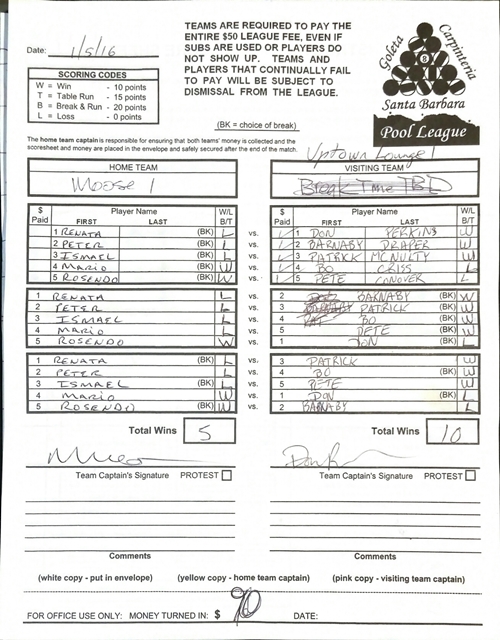 TEAMS ARE REQUIRED TO PAY THE
ENTIRE $50 LEAGUE FEE, EVEN IF
SUBS ARE USED OR PLAYERS DO
NOT SHOW UP. TEAMS AND
PLAYERS THAT CONTINUALLY FAIL
TO PAY WILL BE SUBJECT TO
DISMISSAL FROM THE LEAGUE.
Date: 1/5/16
SCORING CODES
W = Win - 10 points
T = Table Run - 15 points
B = Break & Run - 20 points
L = Loss - 0 points
Goleta
Carpinteria
8
Santa Barbara
Pool League
(BK = choice of break)
The home team captain is responsible for ensuring that both teams' money is collected and the
scoresheet and money are placed in the envelope and safely secured after the end of the match.
Uptown Lounge 1
HOME TEAM VISITING TEAM
Moose 1 Break Time TBD
$ Paid Player Name FIRST LAST W/L B/T $ Paid Player Name FIRST LAST W/L B/T
1 RENATA (BK) L vs. 1 DON PERKINS W
2 PETER (BK) L vs. 2 BARNABY DRAPER W
3 ISMAEL (BK) L vs. 3 PATRICK MCNULTY W
4 MARIO (BK) W vs. 4 BO CRISS L
5 ROSENDO (BK) W vs. 5 PETE CONOVER L
1 RENATA L vs. 2 BARNABY (BK) W
2 PETER L vs. 3 PATRICK (BK) W
3 ISMAEL L vs. 4 BO (BK) W
4 MARIO L vs. 5 PETE (BK) W
5 ROSENDO W vs. 1 DON (BK) L
1 RENATA (BK) L vs. 3 PATRICK W
2 PETER L vs. 4 BO (BK) W
3 ISMAEL (BK) L vs. 5 PETE W
4 MARIO W vs. 1 DON (BK) L
5 ROSENDO (BK) W vs. 2 BARNABY L
Total Wins 5 Total Wins 10
Team Captain's Signature PROTEST Team Captain's Signature PROTEST
Comments Comments
(white copy - put in envelope) (yellow copy - home team captain) (pink copy - visiting team captain)
FOR OFFICE USE ONLY: MONEY TURNED IN: $ 90 DATE: